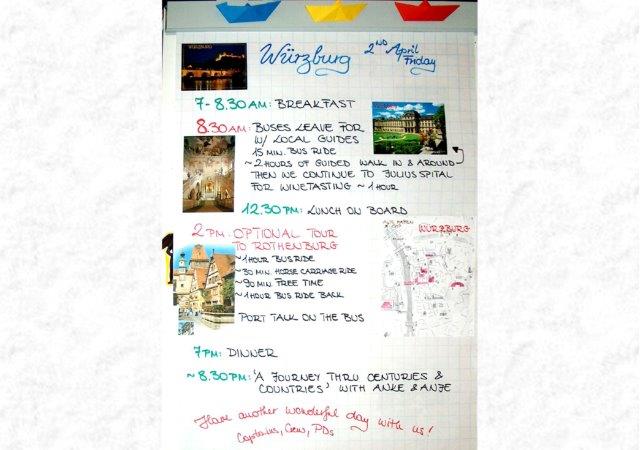 WÜRZBURG
Würzburg
2ND April
Friday
7-8.30AM: BREAKFAST
8.30AM: BUSES LEAVE FOR
W/ LOCAL GUIDES
15 MIN. BUS RIDE
~2 HOURS OF GUIDED WALK IN & AROUND
THEN WE CONTINUE TO JULIUSSPITAL
FOR WINETASTING ~ 1 HOUR
12.30PM: LUNCH ON BOARD
2PM: OPTIONAL TOUR
TO ROTHENBURG
~1 HOUR BUS RIDE
~30 MIN. HORSE CARRIAGE RIDE
~90 MIN FREE TIME
~1 HOUR BUS RIDE BACK
PORT TALK ON THE BUS
WÜRZBURG
7PM: DINNER
~8.30PM: 'A JOURNEY THRU CENTURIES &
COUNTRIES' WITH ANKE & ANJE
Have another wonderful day with us!
Captains, Crew, PDs